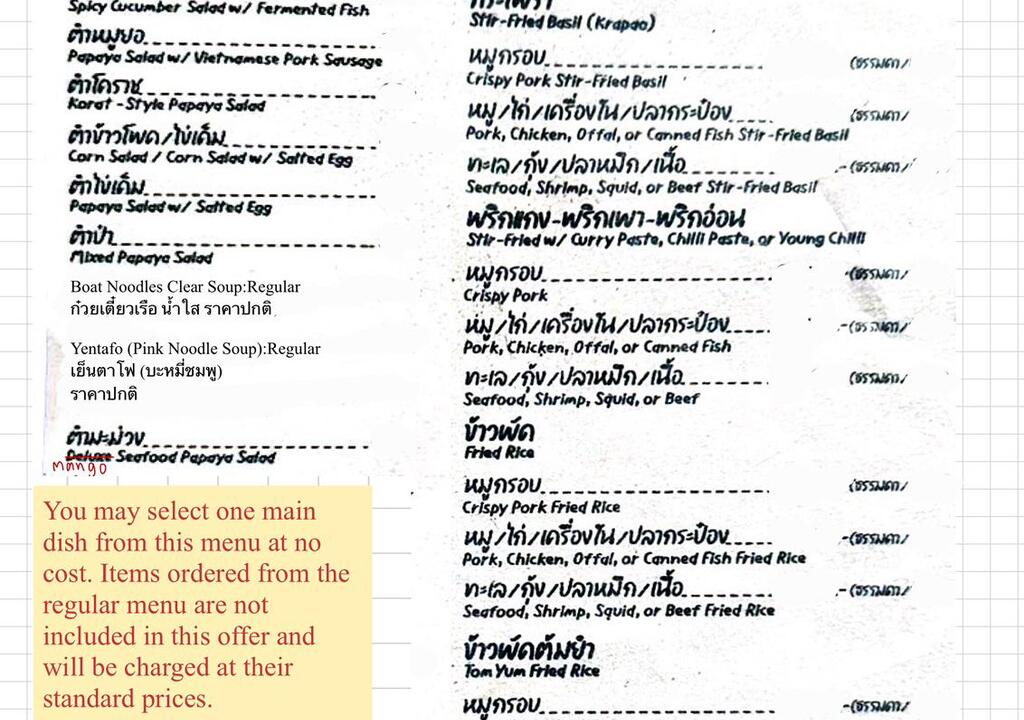 Spicy Cucumber Salad w/ Fermented Fish
ตำหมูยอ
Papaya Salad w/ Vietnamese Pork Sausage
ตำโคราช
Korat-Style Papaya Salad
ตำข้าวโพด/ไข่เค็ม
Corn Salad / Corn Salad w/ Salted Egg
ตำไข่เค็ม
Papaya Salad w/ Salted Egg
ตำป่า
Mixed Papaya Salad
Boat Noodles Clear Soup:Regular
ก๋วยเตี๋ยวเรือ น้ำใส ราคาปกติ
Yentafo (Pink Noodle Soup):Regular
เย็นตาโฟ (บะหมี่ชมพู)
ราคาปกติ
ตำมะม่วง
Deluxe Seafood Papaya Salad
mango
You may select one main
dish from this menu at no
cost. Items ordered from the
regular menu are not
included in this offer and
will be charged at their
standard prices.
Stir-Fried Basil (Krapao)
หมูกรอบ (ธรรมดา/
Crispy Pork Stir-Fried Basil
หมู/ไก่/เครื่องใน/ปลากระป๋อง (ธรรมดา/
Pork, Chicken, Offal, or Canned Fish Stir-Fried Basil
ทะเล/กุ้ง/ปลาหมึก/เนื้อ .-(ธรรมดา/
Seafood, Shrimp, Squid, or Beef Stir-Fried Basil
พริกแกง-พริกเผา-พริกอ่อน
Stir-Fried w/ Curry Paste, Chilli Paste, or Young Chilli
หมูกรอบ -(ธรรมดา/
Crispy Pork
หมู/ไก่/เครื่องใน/ปลากระป๋อง .-(ธรรมดา/
Pork, Chicken, Offal, or Canned Fish
ทะเล/กุ้ง/ปลาหมึก/เนื้อ (ธรรมดา/
Seafood, Shrimp, Squid, or Beef
ข้าวผัด
Fried Rice
หมูกรอบ (ธรรมดา/
Crispy Pork Fried Rice
หมู/ไก่/เครื่องใน/ปลากระป๋อง .-(ธรรมดา/
Pork, Chicken, Offal, or Canned Fish Fried Rice
ทะเล/กุ้ง/ปลาหมึก/เนื้อ .-(ธรรมดา/
Seafood, Shrimp, Squid, or Beef Fried Rice
ข้าวผัดต้มยำ
Tom Yum Fried Rice
หมูกรอบ -(ธรรมดา/